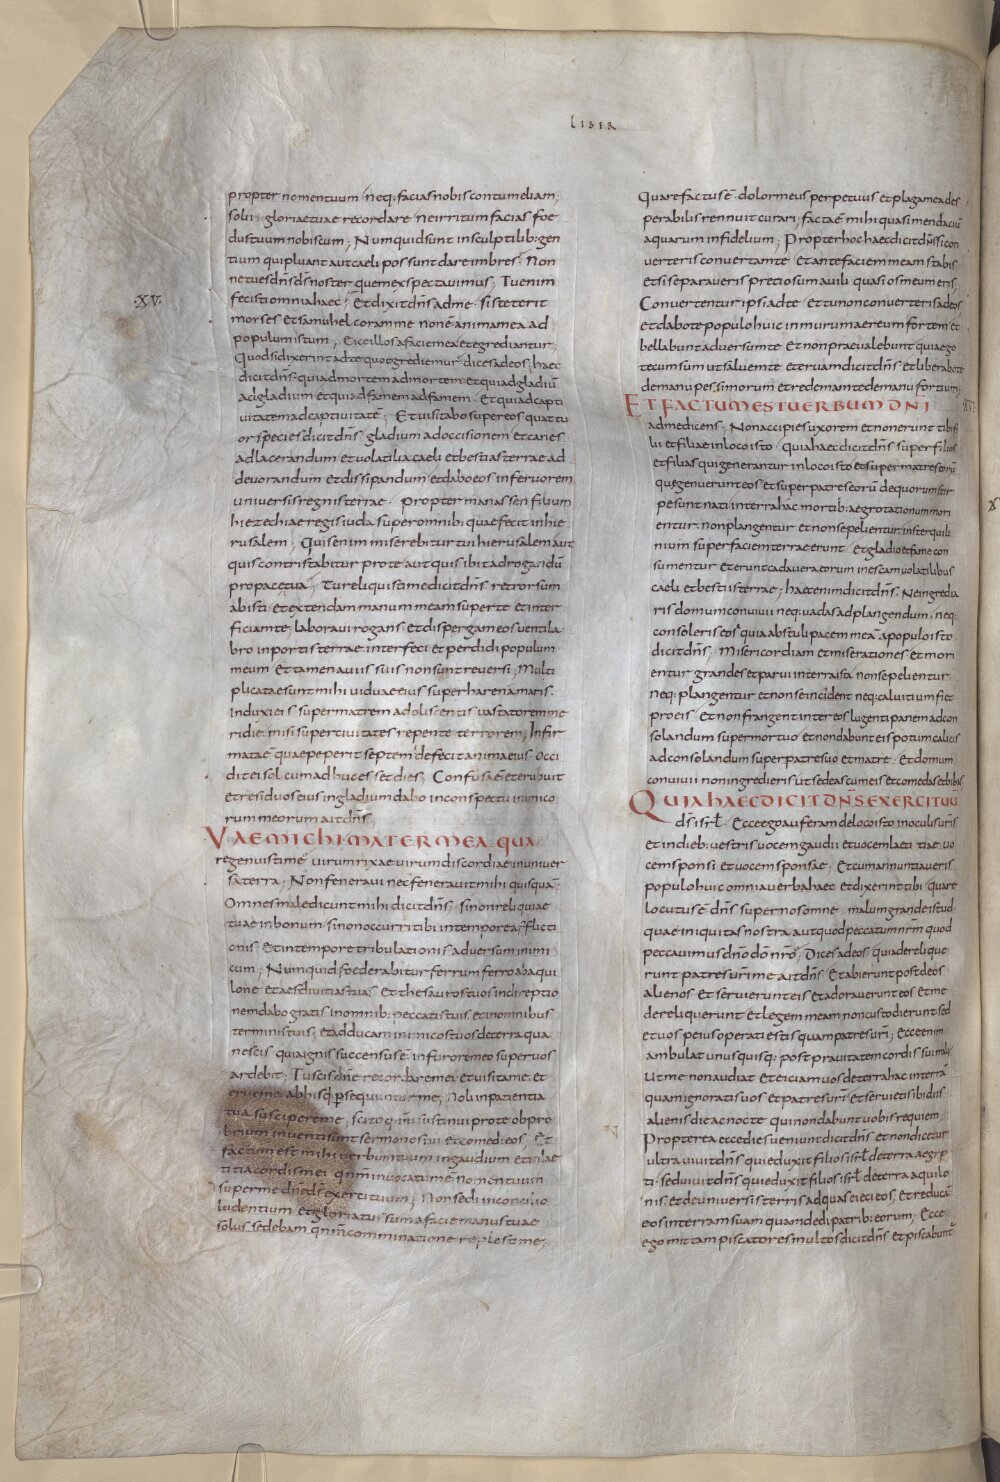 LIBER
propter nomen tuum; neq; facias nobis contumeliam;
solii gloriae tuae recordare ne irritum facias foe
dus tuum nobiscum; Numquid sunt in sculptilib; gen
tium qui pluant aut caeli possunt dare imbres? Non
ne tu es dñs ds noster quem expectavimus; Tu enim
XV.
fecisti omnia haec; Et dixit dñs ad me. si steterit
moses et samuhel coram me non ē anima mea ad
populum istum; Eice illos a facie mea et egrediantur;
Quod si dixerint ad te quo egrediemur? dices ad eos; haec
dicit dñs. qui ad mortem ad mortem et qui ad gladiū
ad gladium et qui ad famem ad famem. Et qui ad capti
vitatem ad captivitatē; Et visitabo super eos quattu
or species dicit dñs. gladium ad occisionem et canes
ad lacerandum et volatilia caeli et bestias terrae ad
devorandum et dissipandum et dabo eos in fervorem
universis regnis terrae. Propter manassen filium
hiezechiae regis iuda super omnib; quae fecit in hie
rusalem; Quis enim miserebitur tui hierusalem aut
quis contristabitur pro te aut quis ibit ad rogandū
pro pace tua; Tu reliquisti me dicit dñs retrorsum
abisti et extendam manum meam super te et inter
ficiam te; laboravi rogans et dispergam eos ventila
bro in portis terrae interfeci et perdidi populum
meum et tamen a viis suis non sunt reversi; Multi
plicatae sunt mihi viduae eius super harenā maris.
Induxi eis super matrem adoliscentis vastatorem me
ridie. misi super civitates repente terrorem; Infir
mata ē quae peperit septem defecit anima eius. Occi
dit ei sol cum adhuc esset dies; Confusa ē et erubuit
et residuos eius in gladium dabo in conspectu inimico
rum meorum ait dñs;
VAE MICHI MATER MEA. QUA
re genuisti me virum rixae virum discordiae in univer
sa terra; Non feneravi nec feneravit mihi quisquā
Omnes maledicunt mihi dicit dñs; si non reliquiae
tuae in bonum; si non occurri tibi in tempore afflicti
onis. Et in tempore tribulationis adversum inimi
cum; Numquid foederabitur ferrum ferro ab aqui
lone et aes divitias tuas. Et thesauros tuos in direptio
nem dabo gratis in omnib; peccatis tuis et in omnibus
terminis tuis; et adducam inimicos tuos de terra qua
nescis quia ignis succensus ē in furore meo super vos
ardebit; Tu scis dñe recordare mei et visita me. et
tua suscipere me, scito qm̄ sustinui pro te obpro
brium inventi sunt sermones tui et comedi eos. Et
factum est mihi verbum tuum in gaudium et in lae
titia cordis mei qm̄ invocatum ē nomen tuum
super me dñe ds exercituum; Non sedi in concilio
ludentium et gloriatus sum a facie manus tuae
solus sedebam qm̄ comminatione replesti me;
Quare factus ē dolor meus perpetuus et plaga mea des
perabilis rennuit curari; facta ē mihi quasi mendaciū
aquarum infidelium; Propter hoc haec dicit dñs si con
verteris convertam te. et ante faciem meam stabis.
et si separaveris preciosum a vili quasi os meum eris;
Convertentur ipsi ad te. et tu non converteris ad eos,
et dabo te populo huic in murum aereum fortem et
bellabunt adversum te et non praevalebunt quia ego
tecum sum ut salvem te. et eruam dicit dñs. et liberabo te
de manu pessimorum et redemam te de manu fortium;
ET FACTUM EST VERBUM DNI
ad me dicens; Non accipies uxorem et non erunt tibi fi
lii et filiae in loco isto. quia haec dicit dñs super filios
et filias qui generantur in loco isto et super matres eorū
quę genuerunt eos et super patres eorū de quorum stir
pe sunt nati in terra hac. mortib; aegrotationum mori
entur. non plangentur et non sepelientur. in sterquili
nium super faciem terrae erunt. et gladio et fame con
sumentur et erunt cadavera eorum in escam volatilibus
caeli et bestiis terrae; haec enim dicit dñs. Ne ingredia
ris domum convivii neq; vadas ad plangendum; neq;
consoleris eos quia abstuli pacem meā a populo isto
dicit dñs; Misericordiam et miserationes et mori
entur grandes et parvi in terra ista. non sepelientur
neq; plangentur et non se incident neq; calvitium fiet
pro eis. Et non frangent inter eos lugenti panem ad con
solandum super mortuo. et non dabunt eis potum calicis
ad consolandum super patre suo et matre. Et domum
convivii non ingredieris ut sedeas cum eis et comedas et bibas
QUIA HAEC DICIT DÑS EXERCITUŪ
ds isrł. Ecce ego auferam de loco isto in oculis uris
et in dieb; vestris vocem gaudii et vocem laetitiae. vo
cem sponsi et vocem sponsae. Et cum annuntiaveris
populo huic omnia verba haec et dixerint tibi. quare
locutus ē dñs super nos omne malum grande istud.
quae iniquitas nostra aut quod peccatum nrm̄ quod
peccavimus dño dō nrō; Dices ad eos. quia dereliquē
runt patres uri me ait dñs. Et abierunt post deos
alienos et servierunt eis et adoraverunt eos et me
dereliquerunt et legem meam non custodierunt sed
et vos peius operati estis quam patres uri; ecce enim
ambulat unus quisq; post pravitatem cordis sui mali
ut me non audiat. et eiciam vos de terra hac in terrā
quam ignoratis vos et patres uri et servietis ibi diis
alienis die ac nocte qui non dabunt vobis requiem;
Propterea ecce dies veniunt dicit dñs. et non dicetur
ultra vivit dñs qui eduxit filios isrł de terra aegip
ti. sed vivit dñs qui eduxit filios isrł de terra aquilo
nis. et de universis terris ad quas eieci eos. et reducā
eos in terram suam quam dedi patrib; eorum; Ecce
ego mittam piscatores multos dicit dñs et piscabunt